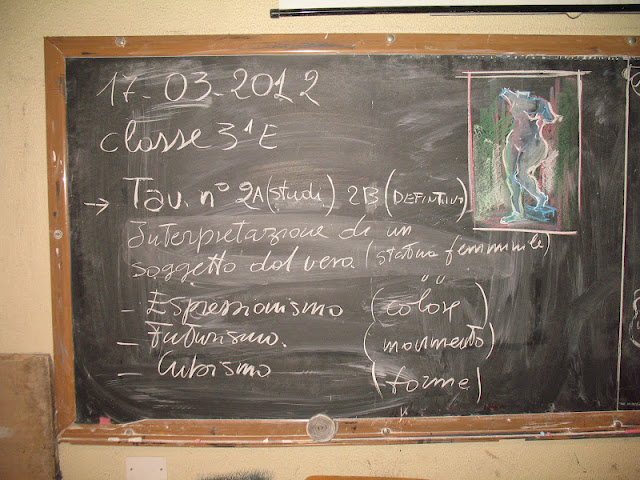 17-03-2012
classe 3ªE
→ Tav. n° 2A (studi) 2B (DEFINITIVO)
Interpretazione di un
soggetto dal vero (statua femminile)
- Espressionismo (colore)
- Futurismo. (movimento)
- Cubismo (forme)